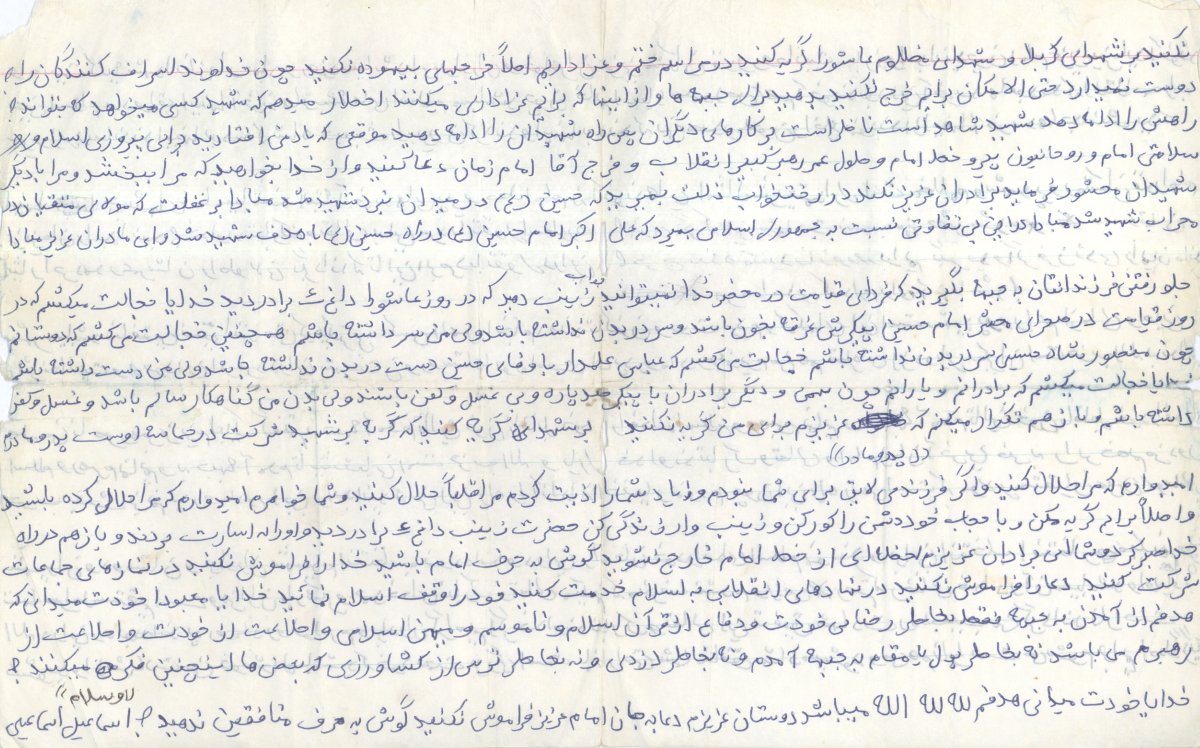 نکنید بر شهدای کربلا و شهدای مظلوم عاشورا گریه کنید در مراسم ختم و عزاداریم اصلاً خرجهای بیهوده نکنید چون خداوند اسراف کنندگان را
دوست نمیدارد حتی الامکان برایم خرج نکنید بدهید برای جبهه ها و از اینها که برایم عزاداری میکنند اخطار میدهم که شهید کسی میخواهد که بتواند
راهش را ادامه دهد شهید شاهد است ناظر است بر کارهای دیگران پس راه شهیدان را ادامه دهید موقعی که یاد من افتادید برای پیروزی اسلام و
سلامتی امام و روحانیون پیرو خط امام و طول عمر رهبر کبیر انقلاب و فرج آقا امام زمان دعا کنید و از خدا بخواهید که مرا ببخشد و مرا با دیگر
شهیدان محشور فرماید برادران عزیز نکند در رختخواب ذلت بمیرید که حسین (ع) در میدان نبرد شهید شد مبادا در غفلت که مولای متقیان در
محراب شهید شد مبادا در بی تفاوتی نسبت به جمهوری اسلامی بمیرد که علی اکبر امام حسین (ع) در راه حسین (ع) با هدف شهید شد و ای مادران عزیز مبادا
جلو رفتن فرزندانتان به جبهه بگیرید که فردای قیامت در محضر خدا نمیتوانید جواب زینب دهید که در روز عاشورا داغ ۶ برادر دید خدایا خجالت میکشم که در
روز قیامت در صحرای محشر امام حسین پیکرش غرقه بخون باشد و سر در بدن نداشته باشد ولی من سر داشته باشم همچنین خجالت می کشم که دوستانم
چون منظور شاه حسین سر در بدن نداشته باشم خجالت می کشم که عباس علمدار با وفای حسین دست در بدن نداشته باشد ولی من دست داشته باشم
خدایا خجالت میکشم که برادرانم و یارانم چون و دیگر برادران با پیکر صد پاره و بی غسل و کفن باشند ولی بدن من گناهکار سالم باشد و غسل و کفن
داشته باشم و باز هم تکرار میکنم که عزیزم برای من گریه نکنید بر شهدا گریه کنید که گریه بر شهید شرکت در حماسه اوست پدر و مادرم
(( پدر و مادر ))
امیدوارم که مرا حلال کنید و اگر فرزندی لایق برای شما نبودم و زیاد شما را اذیت کردم مرا قلباً حلال کنید و شما خواهرم امیدوارم که مرا حلال کرده باشید
و اصلاً برایم گریه مکن و با حجاب خود دشمن را کور کن و زینب وار زندگی کن حضرت زینب داغ ۶ برادر دید و او را به اسارت بردند و باز هم در راه
خدا صبر کرد و شما ای برادران عزیزم لحظه ای از خط امام خارج نشوید گوش به حرف امام باشید خدا را فراموش نکنید در نمازهای جماعات
شرکت کنید دعا را فراموش نکنید در نهادهای انقلابی به اسلام خدمت کنید خود را وقف اسلام نمائید خدایا معبودا خودت میدانی که
هدفم از آمدن به جبهه فقط بخاطر رضای خودت و دفاع از قرآن اسلام و ناموسم و میهن اسلامی و اطاعت از خودت و اطاعت از
رهبرم می باشد نه بخاطر پول یا مقام به جبهه آمدم و نه بخاطر لازدلی و نه بخاطر ترس از کشاورزی که بعضی ها اینچنین فکر میکنند
خدایا خودت میدانی هدفم لله لله الله میباشد دوستان عزیزم دعا به جان امام عزیز فراموش نکنید گوش به حرف منافقین ندهید اسماعیل اسماعیلی
والسلام